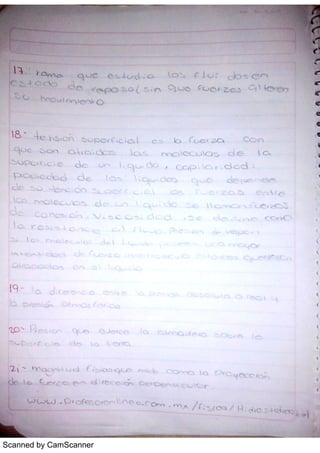 17- rama que estudia los fluidos en
estado de reposo (sin que fuerzas alteren
su movimiento
18- tensión superficial es la fuerza con
que son atraidas las moleculas de la
superficie de un liquido, capilaridad:
propiedad de los liquidos que depende
de su tensión superficial las fuerzas entre
las moleculas de un liquido se llaman fuerzas
de cohesión. Viscosidad: se define como
la resistencia al flujo. Presion de vapor:
si las moleculas del liquido mayor
intensidad de fuerza intermolecular entonces quedaran
atrapadas en el liquido
19- la diferencia entre la presion absoluta o real y
la presion atmosferica
20- Presion que ejerce la atmosfera sobre la
superficie de la tierra
21- magnitud fisica que mide como la proyección
de la fuerza en dirección perpendicular
www.profesorenlinea.com.mx/fisica/Hidrostatica
Scanned by CamScanner